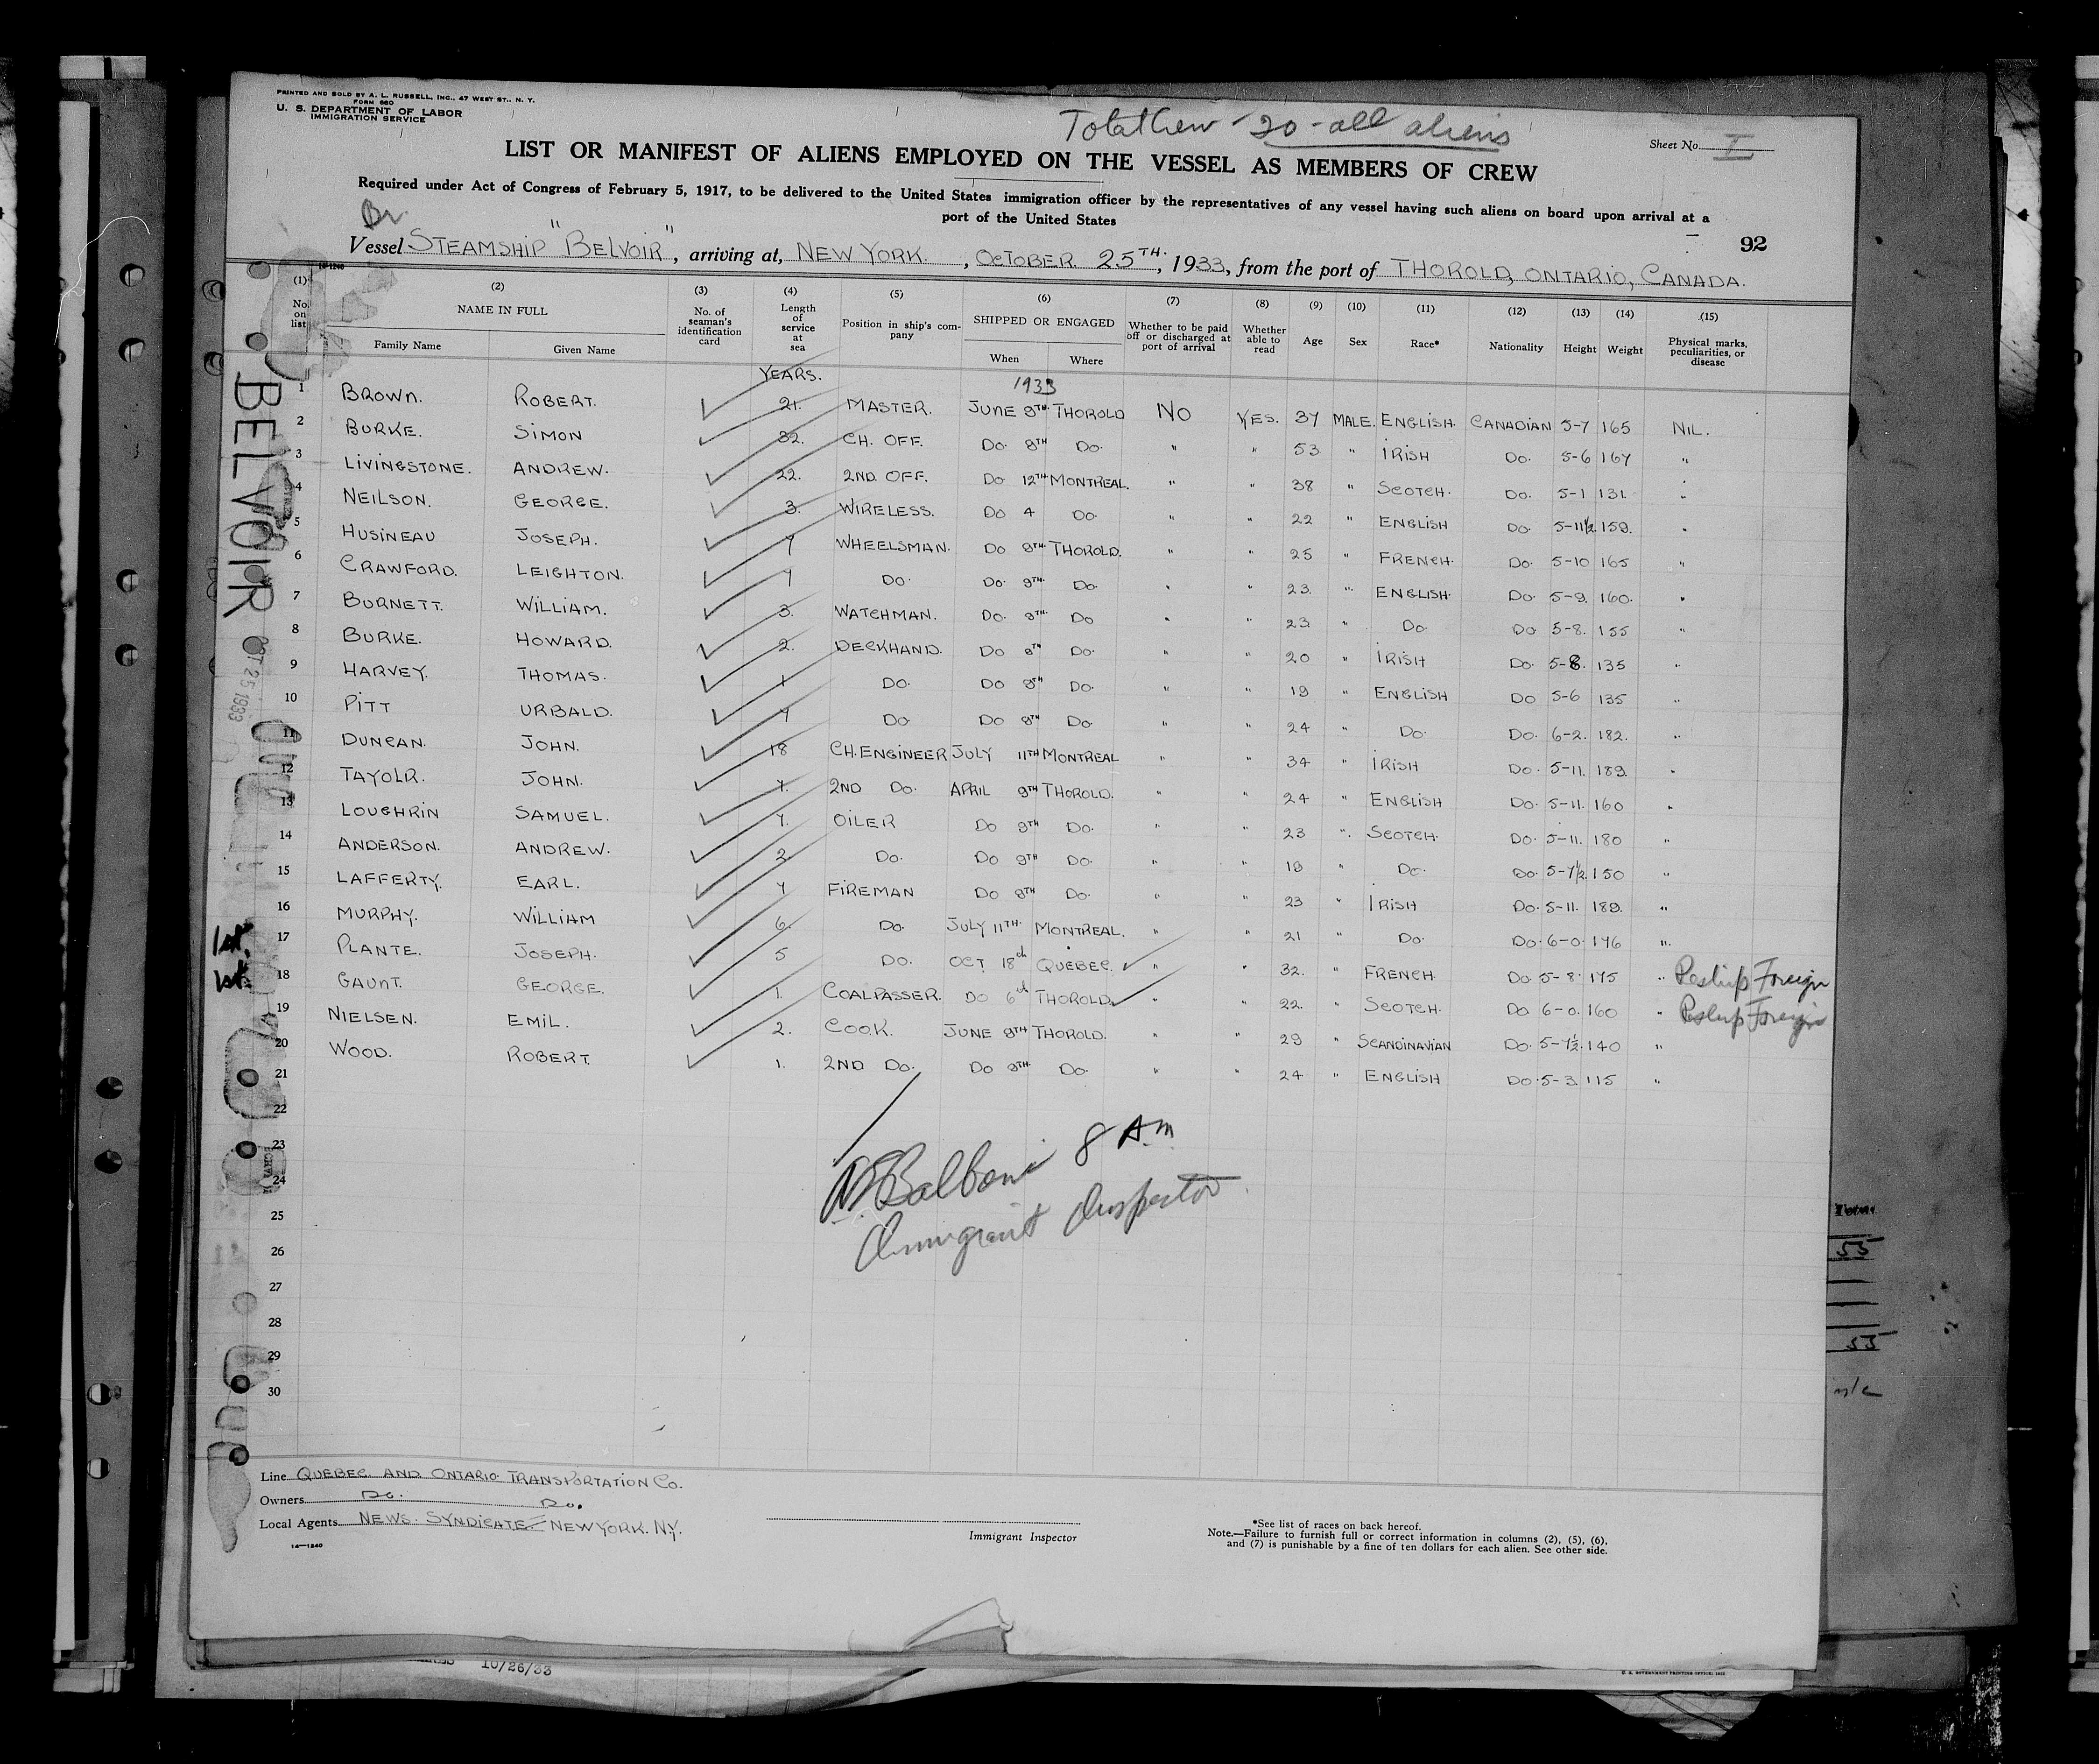 PRINTED AND SOLD BY A. L. RUSSELL, INC., 47 WEST ST., N. Y.
FORM 680
U. S. DEPARTMENT OF LABOR
IMMIGRATION SERVICE
Total Crew - 20 - all aliens
Sheet No. I
LIST OR MANIFEST OF ALIENS EMPLOYED ON THE VESSEL AS MEMBERS OF CREW
Required under Act of Congress of February 5, 1917, to be delivered to the United States immigration officer by the representatives of any vessel having such aliens on board upon arrival at a
port of the United States
92
Br.
Vessel STEAMSHIP "BELVOIR", arriving at, NEW YORK., OCTOBER 25TH, 1933, from the port of THOROLD, ONTARIO, CANADA.
14-1240
(1) No. on list (2) NAME IN FULL Family Name Given Name (3) No. of seaman's identification card (4) Length of service at sea (5) Position in ship's company (6) SHIPPED OR ENGAGED When Where (7) Whether to be paid off or discharged at port of arrival (8) Whether able to read (9) Age (10) Sex (11) Race* (12) Nationality (13) Height (14) Weight (15) Physical marks, peculiarities, or disease
YEARS. 1933
1 BROWN. ROBERT. 21. MASTER. JUNE 8TH THOROLD NO YES. 37 MALE. ENGLISH. CANADIAN 5-7 165 NIL.
2 BURKE. SIMON 32. CH. OFF. DO. 8TH DO. " " 53 " IRISH DO. 5-6 167 "
3 LIVINGSTONE. ANDREW. 22. 2ND OFF. DO 12TH MONTREAL. " " 38 " SCOTCH. DO. 5-1 131 "
4 NEILSON. GEORGE. 3. WIRELESS. DO 4 DO " " 22 " ENGLISH DO. 5-11½ 159. "
5 HUSINEAU JOSEPH. 7 WHEELSMAN. DO 8TH THOROLD. " " 25 " FRENCH. DO. 5-10 165 "
6 CRAWFORD. LEIGHTON. 7 DO. DO. 9TH DO. " " 23. " ENGLISH. DO. 5-9. 160. "
7 BURNETT. WILLIAM. 3. WATCHMAN. DO. 8TH DO " " 23 " DO. DO 5-8. 155 "
8 BURKE. HOWARD. 2. DECKHAND. DO 8TH DO. " " 20 " IRISH DO. 5-8. 135 "
9 HARVEY. THOMAS. 1 DO. DO 8TH DO. " " 19 " ENGLISH DO 5-6 135 "
10 PITT URBALD. 7 DO. DO 8TH DO " " 24 " DO. DO. 6-2. 182. "
11 DUNCAN. JOHN. 18 CH. ENGINEER JULY 11TH MONTREAL " " 34 " IRISH DO. 5-11. 189. "
12 TAYOLR. JOHN. 7. 2ND DO. APRIL 9TH THOROLD. " " 24 " ENGLISH DO. 5-11. 160 "
13 LOUGHRIN SAMUEL. 7. OILER DO 9TH DO. " " 23 " SCOTCH. DO. 5-11. 180 "
14 ANDERSON. ANDREW. 2. DO. DO 9TH DO. " " 19 " DO. DO. 5-7½ 150 "
15 LAFFERTY. EARL. 7 FIREMAN DO 8TH DO. " " 23 " IRISH DO. 5-11. 189. "
16 MURPHY. WILLIAM 6. DO. JULY 11TH. MONTREAL. " " 21 " DO. DO. 6-0. 176 "
1st. 17 PLANTE. JOSEPH. 5 DO. OCT 18th QUEBEC. " " 32. " FRENCH. DO 5-8. 175 " Reship Foreign
1st. 18 GAUNT. GEORGE. 1. COALPASSER. DO 6th THOROLD. " 22. " SCOTCH. DO 6-0. 160 " Reship Foreign
19 NIELSEN. EMIL. 2. COOK. JUNE 9TH THOROLD. " " 29 " SCANDINAVIAN DO. 5-7½. 140 "
20 WOOD. ROBERT. 1. 2ND DO. DO 9TH DO. " " 24 " ENGLISH DO. 5-3. 115 "
21
22
23
24
25
26
27
28
29
30
BELVOIR
OCT 25 1933
Balboni 8 AM
Immigrant Inspector
Line QUEBEC AND ONTARIO TRANSPORTATION CO.
Owners DO. DO.
Local Agents NEWS SYNDICATE NEW YORK. NY.
14-1240
Immigrant Inspector
*See list of races on back hereof.
Note.—Failure to furnish full or correct information in columns (2), (5), (6),
and (7) is punishable by a fine of ten dollars for each alien. See other side.
55
55
10/26/33
U. S. GOVERNMENT PRINTING OFFICE